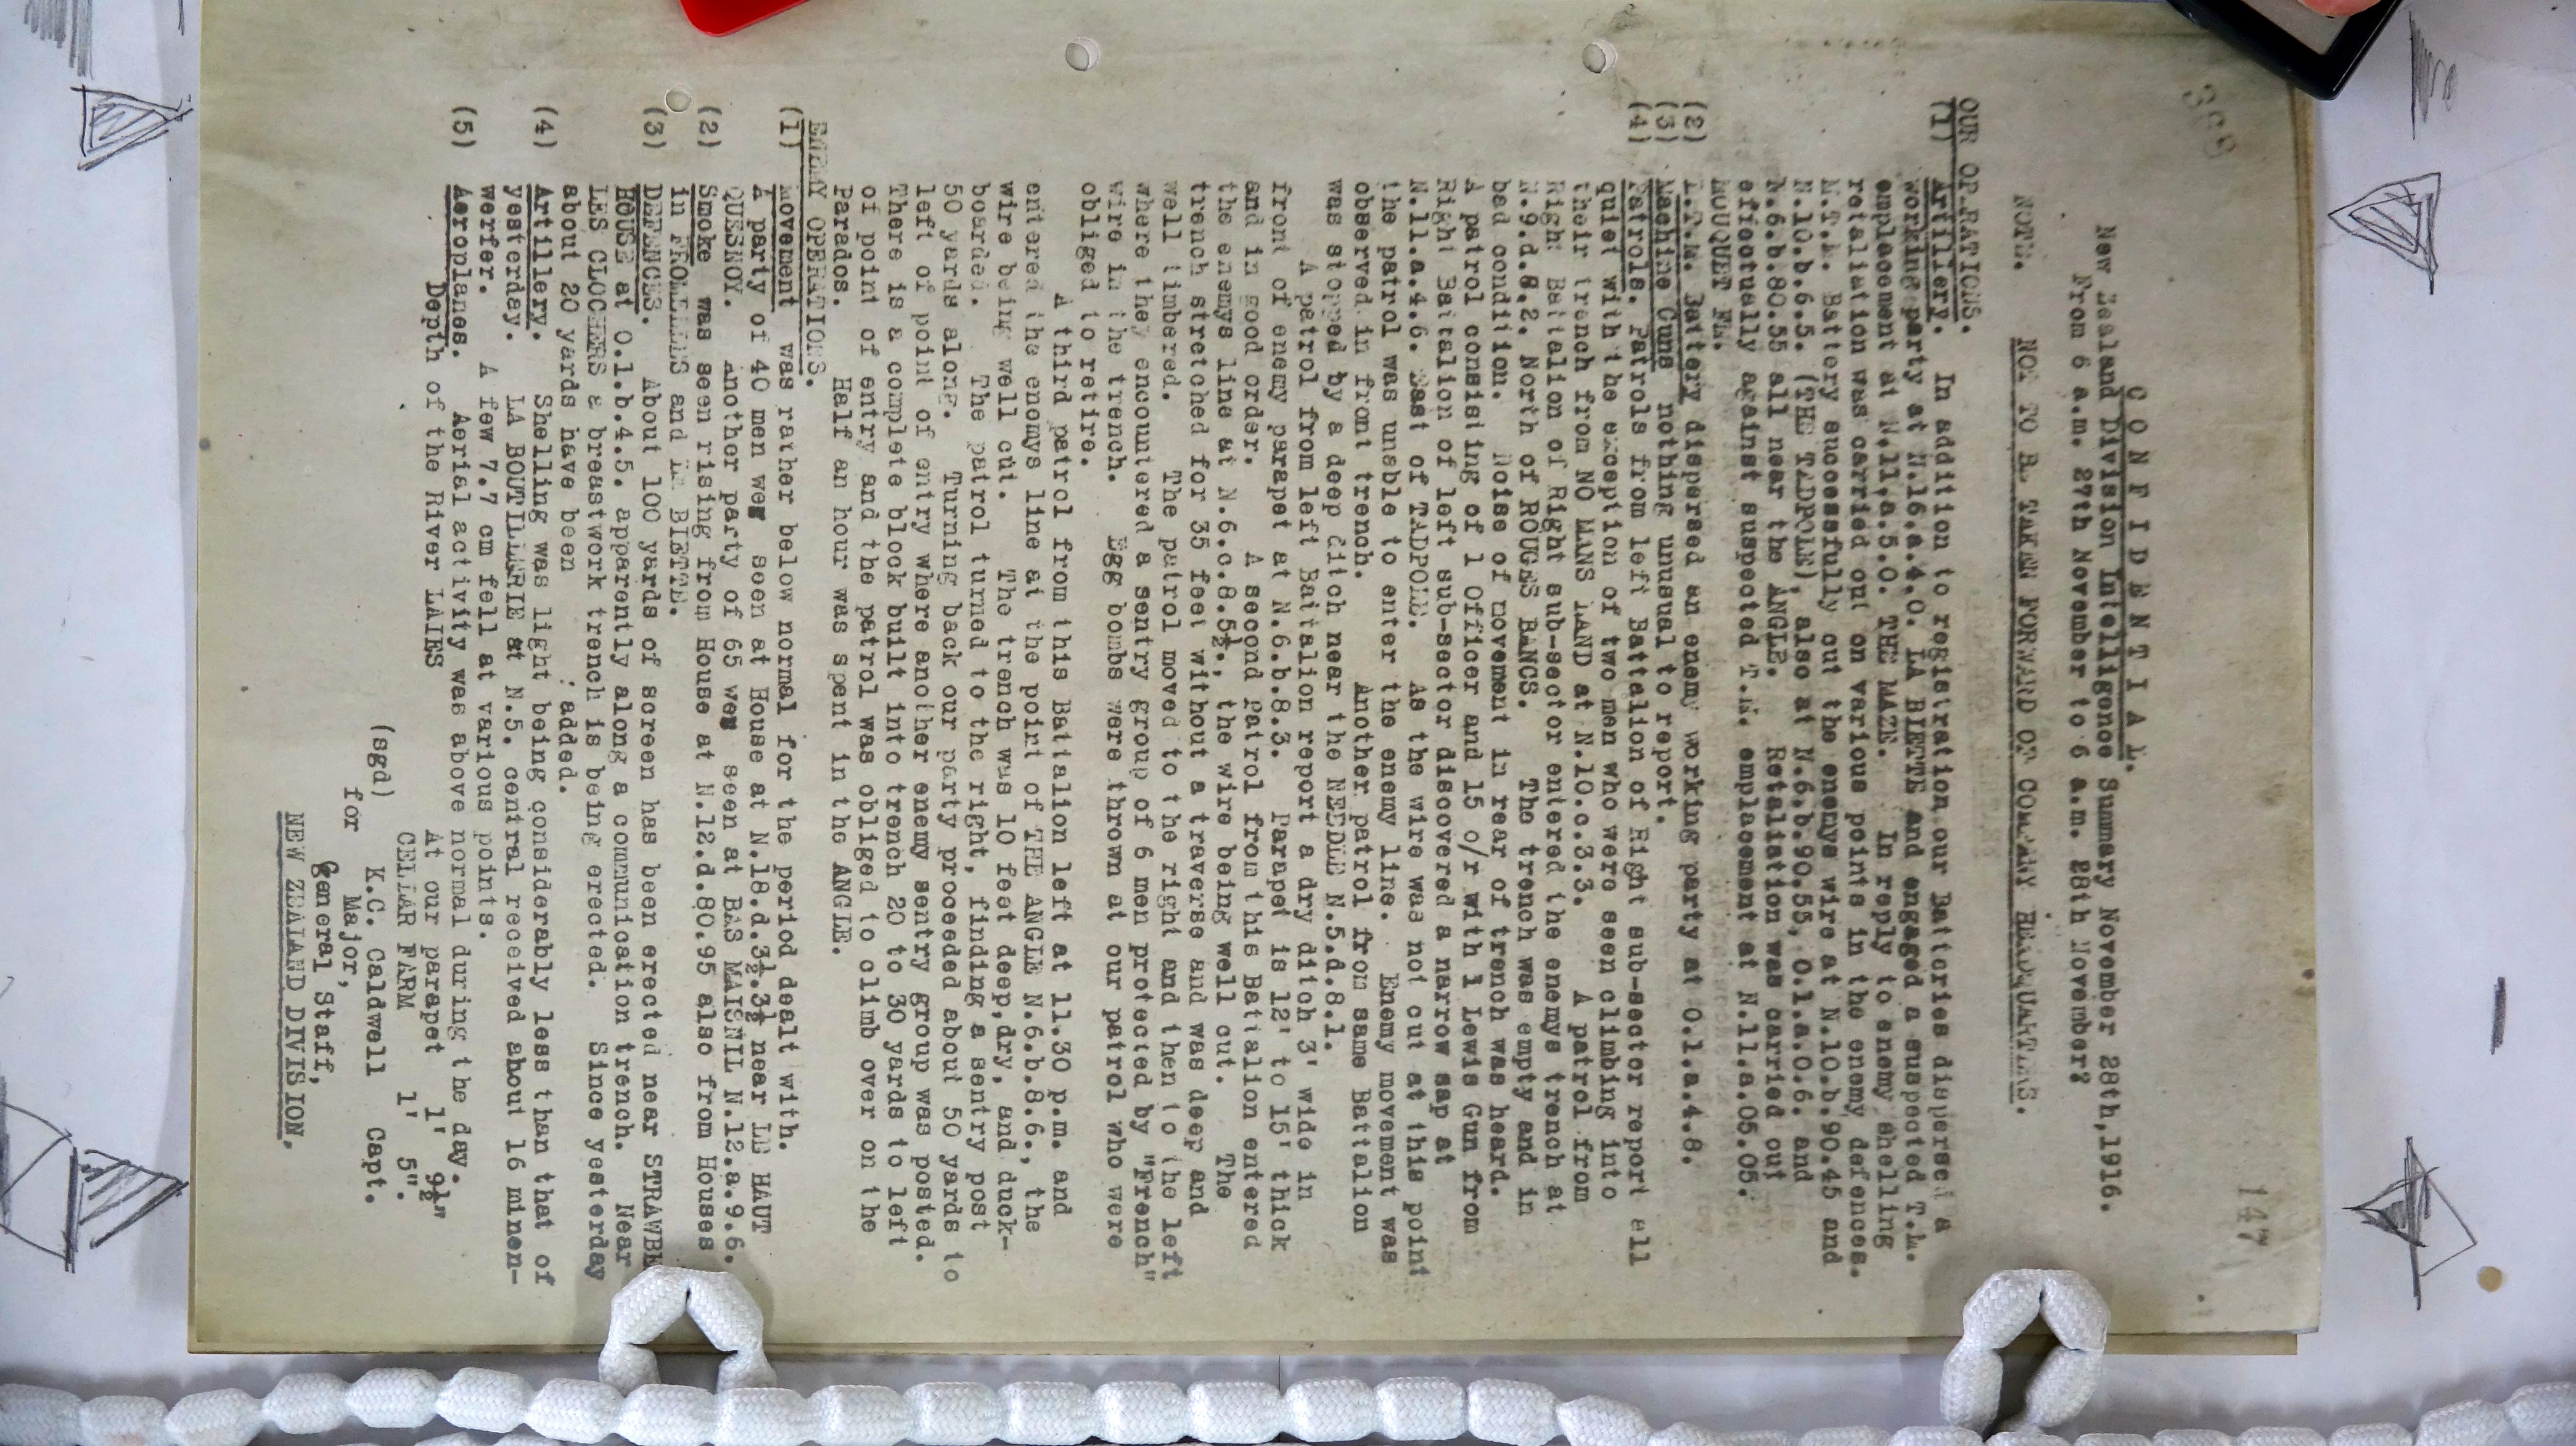 368
147
C O N F I D E N T I A L.
New Zealand Division Intelligence Summary November 28th, 1916.
From 6 a.m. 27th November to 6 a.m. 28th November?
NOTE. NOT TO BE TAKEN FORWARD OF COMPANY HEADQUARTERS.
OUR OPERATIONS.
(1) Artillery. In addition to registration our Batteries dispersed a
working party at N.16.a.4.0. LA BIETTE and engaged a suspected T.M.
emplacement at N.11.a.5.0. THE MAZE. In reply to enemy shelling
retaliation was carried out on various points in the enemy defences.
M.T.M. Battery successfully cut the enemys wire at N.10.b.90.45 and
N.10.b.6.5. (THE TADPOLE), also at N.6.b.90.55, O.1.a.0.6. and
N.6.b.80.55 all near the ANGLE. Retaliation was carried out
effectually against suspected T.M. emplacement at N.11.a.05.05.
BOUQUET FM.
(2) L.T.M. Battery dispersed an enemy working party at O.1.a.4.8.
(3) Machine Guns nothing unusual to report.
(4) Patrols. Patrols from left Battalion of Right sub-sector report all
quiet with the exception of two men who were seen climbing into
their trench from NO MANS LAND at N.10.c.3.3. A patrol from
Right Battalion of Right sub-sector entered the enemys trench at
N.9.d.8.2. North of ROUGES BANCS. The trench was empty and in
bad condition. Noise of movement in rear of trench was heard.
A patrol consisting of 1 Officer and 15 o/r with 1 Lewis Gun from
Right Battalion of left sub-sector discovered a narrow sap at
N.11.a.4.6. East of TADPOLE. As the wire was not cut at this point
the patrol was unable to enter the enemy line. Enemy movement was
observed in front trench. Another patrol from same Battalion
was stopped by a deep ditch near the NEEDLE N.5.d.8.1.
A patrol from left Battalion report a dry ditch 3' wide in
front of enemy parapet at N.6.b.8.3. Parapet is 12' to 15' thick
and in good order. A second patrol from this Battalion entered
the enemys line at N.6.c.8.5½., the wire being well cut. The
trench stretched for 35 feet without a traverse and was deep and
well timbered. The patrol moved to the right and then to the left
where they encountered a sentry group of 6 men protected by "French"
wire in the trench. Egg bombs were thrown at our patrol who were
obliged to retire.
A third patrol from this Battalion left at 11.30 p.m. and
entered the enemys line at the point of THE ANGLE N.6.b.8.6., the
wire being well cut. The trench was 10 feet deep,dry, and duck-
boarded. The patrol turned to the right, finding a sentry post
50 yards along. Turning back our party proceeded about 50 yards to
left of point of entry where another enemy sentry group was posted.
There is a complete block built into trench 20 to 30 yards to left
of point of entry and the patrol was obliged to climb over on the
Parados. Half an hour was spent in the ANGLE.
ENEMY OPERATIONS.
(1) Movement was rather below normal for the period dealt with.
A party of 40 men was seen at House at N.18.d.3½.3½ near LE HAUT
QUESNOY. Another party of 65 was seen at BAS MAISNIL N.12.a.9.6.
(2) Smoke was seen rising from House at N.12.d.80.95 also from Houses
in FROLLES and LE BIETTE.
(3) DEFENCES. About 100 yards of screen has been erected near STRAWBE
HOUSE at O.1.b.4.5. apparently along a communication trench. Near
LES CLOCHERS a breastwork trench is being erected. Since yesterday
about 20 yards have been added.
(4) Artillery. Shelling was light being considerably less than that of
yesterday. LA BOUTILLERIE at N.5. central received about 16 minen-
werfer. A few 7.7 cm fell at various points.
(5) Aeroplanes. Aerial activity was above normal during the day.
Depth of the River LAIES At our parapet 1' 9½"
CELLAR FARM 1' 5".
(sgd) K.C. Caldwell Capt.
for Major,
General Staff,
NEW ZEALAND DIVISION.